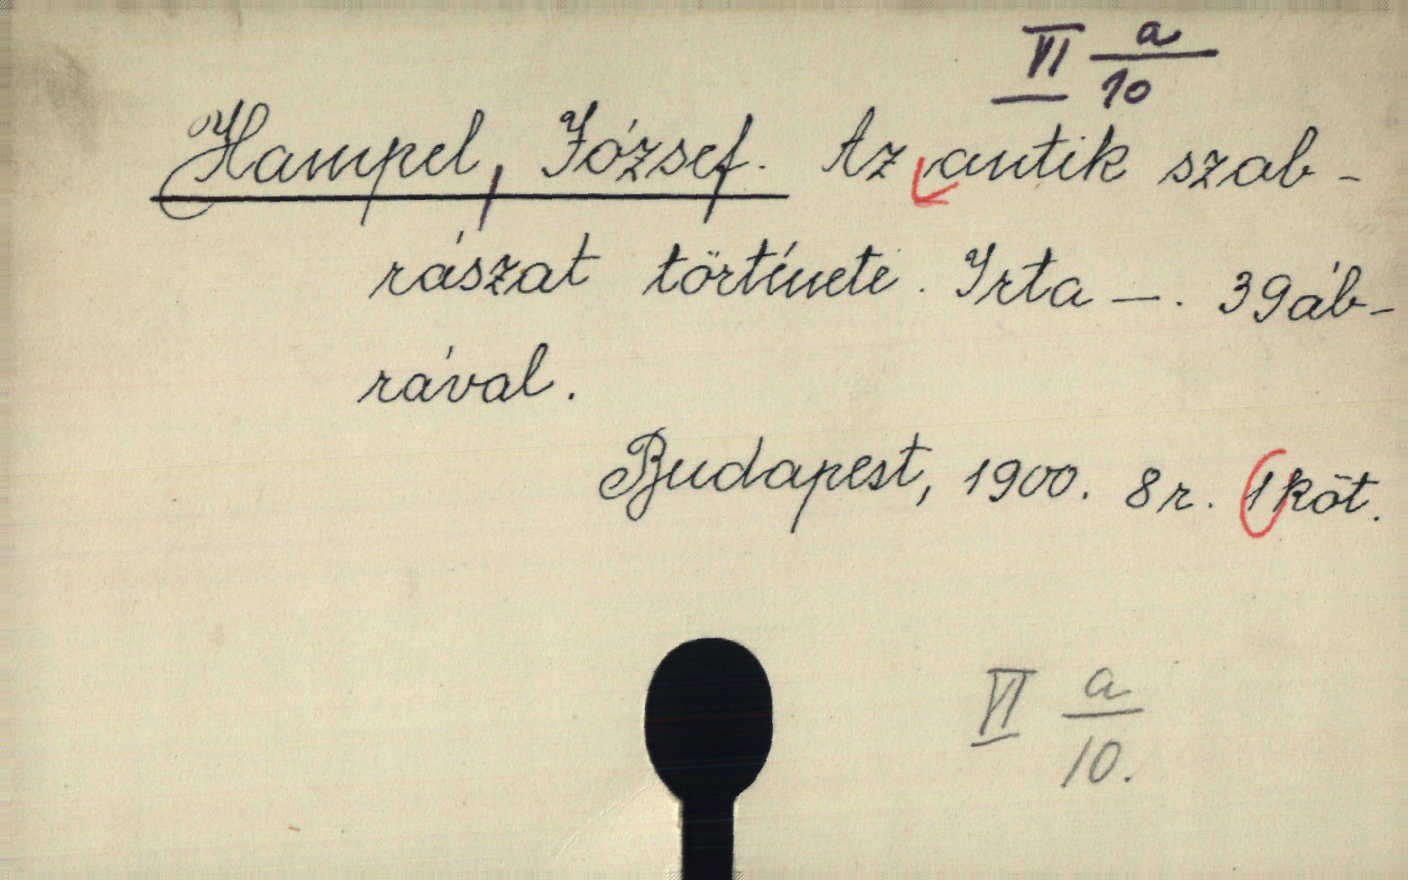 VI a/10
Hampel, József. Az antik szab-
rászat története. Irta —. 39 áb-
rával.
Budapest, 1900. 8 r. 1 köt.
VI a/10.